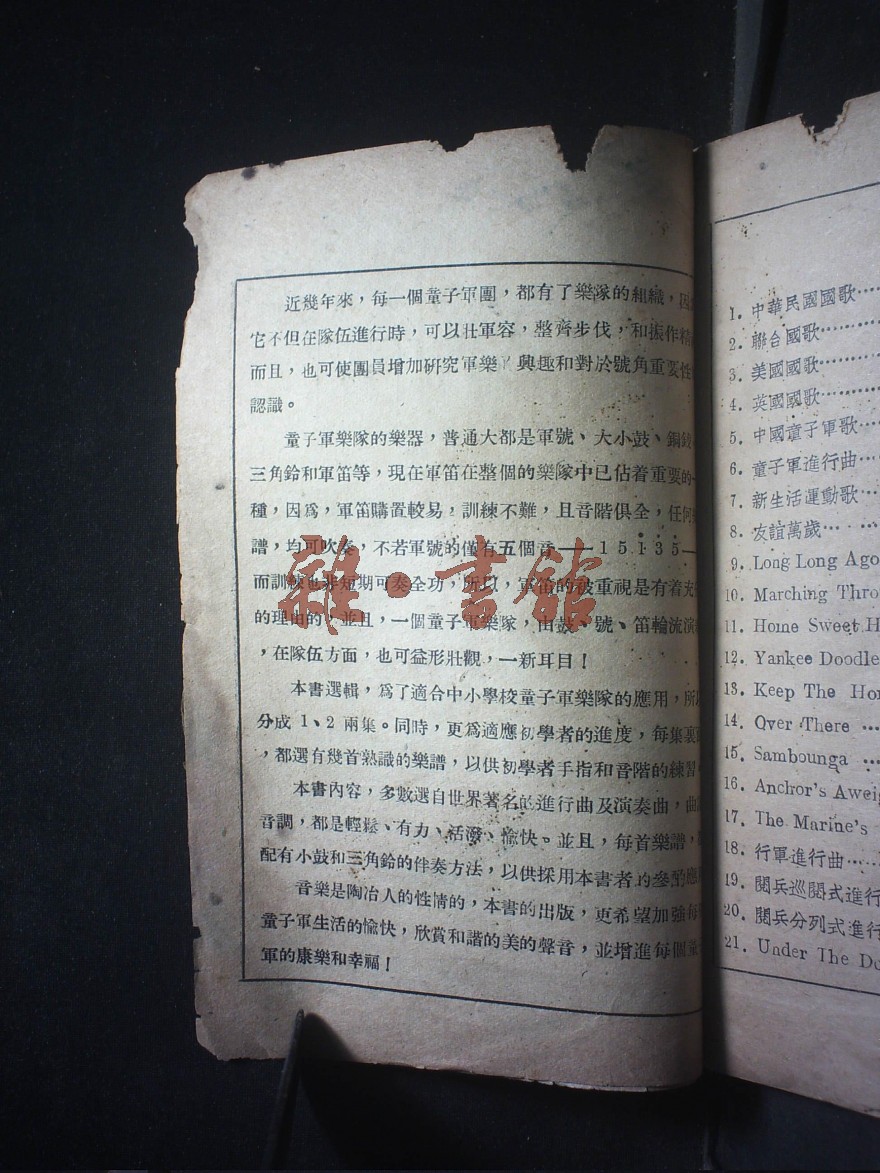 近幾年來，每一個童子軍團，都有了樂隊的組織，因
它不但在隊伍進行時，可以壯軍容，整齊步伐，和振作精
而且，也可使團員增加研究軍樂 興趣和對於號角重要性
認識。
童子軍樂隊的樂器，普通大都是軍號、大小鼓、銅鈸
三角鈴和軍笛等，現在軍笛在整個的樂隊中已佔着重要的一
種，因爲，軍笛購置較易，訓練不難，且音階俱全，任何
譜，均可吹奏，不若軍號的僅有五個音——1 5 1 3 5—
而訓練也非短期可奏全功，所以，軍笛的被重視是有着充
的理由的，並且，一個童子軍樂隊，由鼓、號、笛輪流演
，在隊伍方面，也可益形壯觀，一新耳目！
本書選輯，爲了適合中小學校童子軍樂隊的應用，所
分成1、2兩集。同時，更爲適應初學者的進度，每集裏
，都選有幾首熟識的樂譜，以供初學者手指和音階的練習
本書內容，多數選自世界著名的進行曲及演奏曲，曲
音調，都是輕鬆、有力、活潑、愉快。並且，每首樂譜，
配有小鼓和三角鈴的伴奏方法，以供採用本書者的參酌應
音樂是陶冶人的性情的，本書的出版，更希望加強每
童子軍生活的愉快，欣賞和諧的美的聲音，並增進每個童
軍的康樂和幸福！
雜·書館
1. 中華民國國歌……
2. 聯合國歌……
3. 美國國歌……
4. 英國國歌……
5. 中國童子軍歌……
6. 童子軍進行曲……
7. 新生活運動歌……
8. 友誼萬歲……
9. Long Long Ago
10. Marching Thro
11. Home Sweet H
12. Yankee Doodle
13. Keep The Hom
14. Over There ...
15. Sambounga ...
16. Anchor's Aweig
17. The Marine's
18. 行軍進行曲……
19. 閱兵巡閱式進行
20. 閱兵分列式進行
21. Under The Do